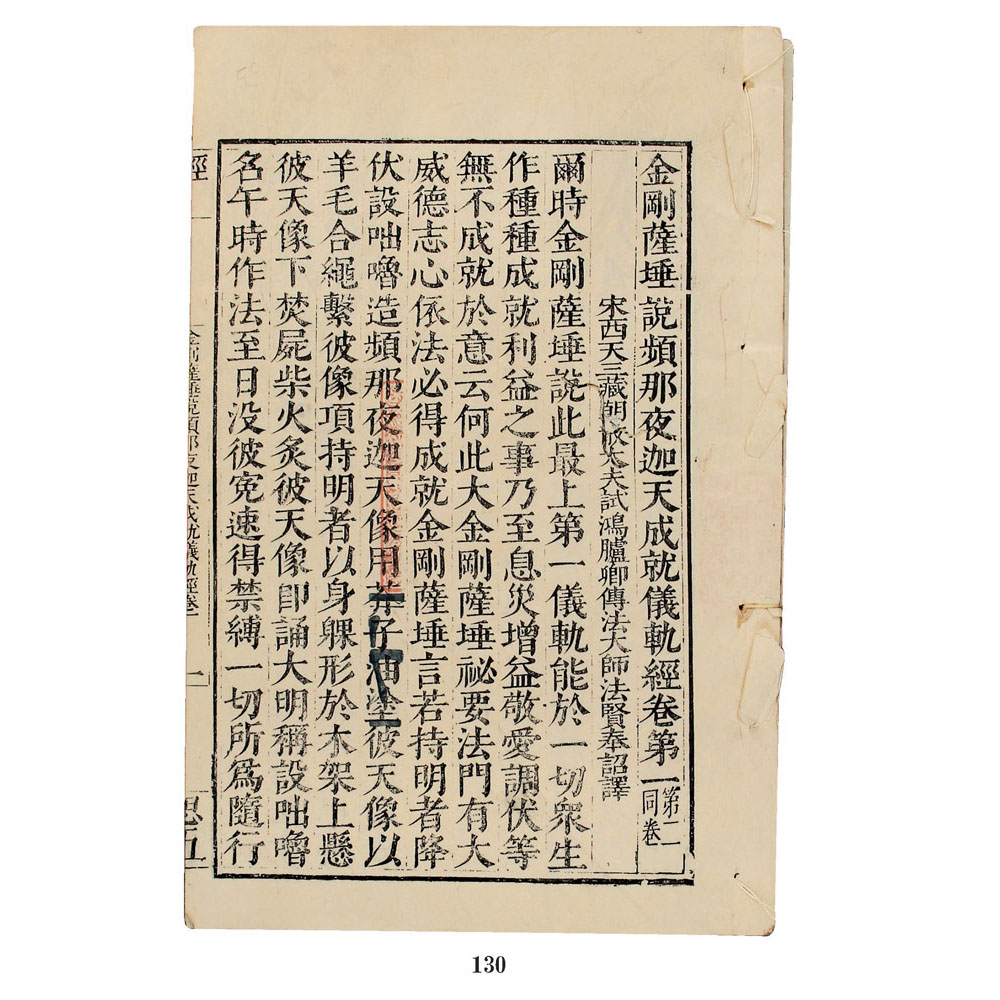 金剛薩埵說頻那夜迦天成就儀軌經卷第一 第二同卷
宋西天三藏朝散大夫試鴻臚卿傳法大師法賢奉詔譯
爾時金剛薩埵說此最上第一儀軌能於一切眾生
作種種成就利益之事乃至息災增益敬愛調伏等
無不成就於意云何此大金剛薩埵祕要法門有大
威德志心依法必得成就金剛薩埵言若持明者降
伏設咄嚕造頻那夜迦天像用芥子油塗彼天像以
羊毛合繩繫彼像項持明者以身躶形於木架上懸
彼天像下焚屍柴火炙彼天像即誦大明稱設咄嚕
名午時作法至日没彼寃速得禁縛一切所爲隨行
經 一
金剛薩埵說頻那夜迦天成就儀軌經卷一
一
思五
130